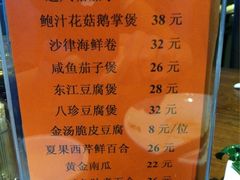 鲍汁花菇鹅掌煲 38 元
沙律海鲜卷 32 元
咸鱼茄子煲 26 元
东江豆腐煲 28 元
八珍豆腐煲 32 元
金汤脆皮豆腐 8 元/位
夏果西芹鲜百合 26 元
黄金南瓜 22 元